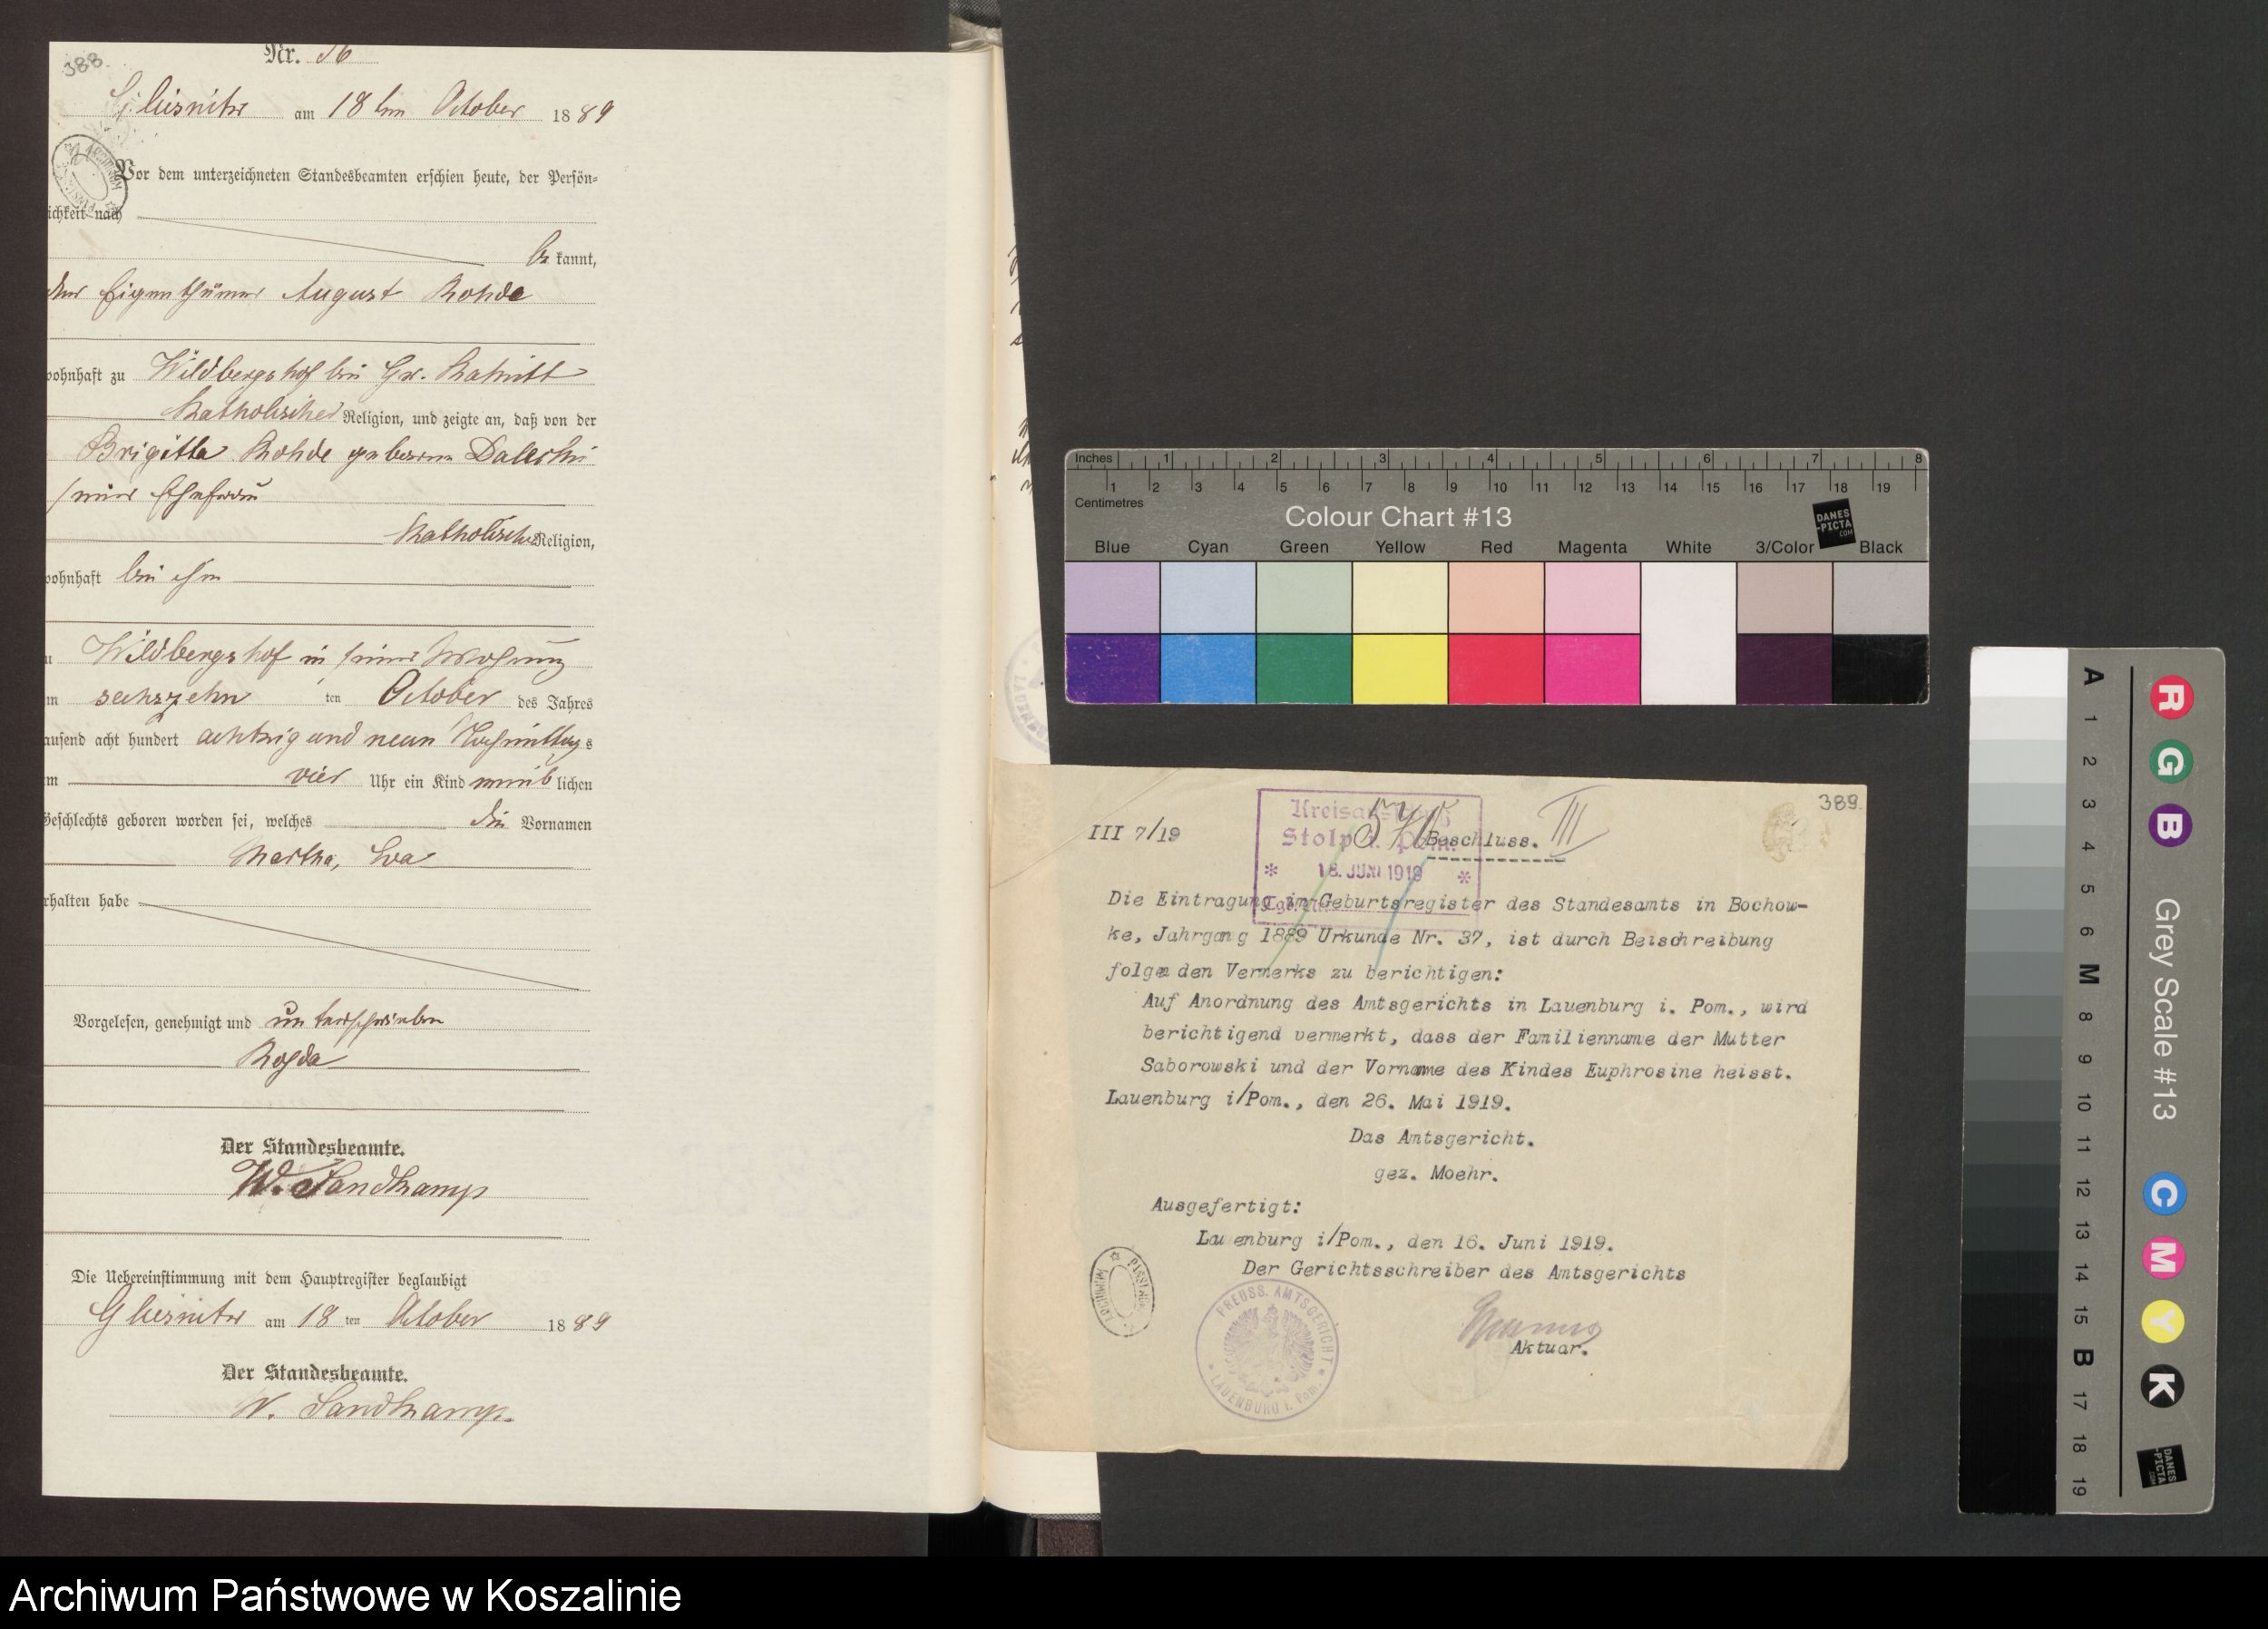 388.
Nr. 36
Gliesnitz am 18ten October 1889
Vor dem unterzeichneten Standesbeamten erschien heute, der Persön-
ichkeit nach
be kannt,
der Eigenthümer August Rohde
wohnhaft zu Wildbergshof bei Gr.
katholischer Religion, und zeigte an, daß von der
Brigitta Rohde geborene
seiner Ehefrau
katholischer Religion,
wohnhaft bei ihm
Wildbergshof in seiner Wohnung
sechszehn ten October des Jahres
ausend acht hundert achtzig und neun Nachmittags
vier Uhr ein Kind weib lichen
Geschlechts geboren worden sei, welches die Vornamen
Martha, Eva
rhalten habe
Vorgelesen, genehmigt und unterschrieben
Rohde
Der Standesbeamte.
W. Sandkamp
Die Uebereinstimmung mit dem Hauptregister beglaubigt
Gliesnitz am 18 ten October 1889
Der Standesbeamte.
W. Sandkamp.
Inches 1 2 3 4 5 6 7 8
1 2 3 4 5 6 7 8 9 10 11 12 13 14 15 16 17 18 19
Centimetres
Colour Chart #13
DANES
-PICTA
.COM
Blue Cyan Green Yellow Red Magenta White 3/Color Black
389.
III 7/19
Beschluss. III
Stolp i. Pom.
* 18. JUNI 1919 *
Die Eintragung im Geburtsregister des Standesamts in Bochow-
ke, Jahrgang 1889 Urkunde Nr. 37, ist durch Beischreibung
folgenden Vermerks zu berichtigen:
Auf Anordnung des Amtsgerichts in Lauenburg i. Pom., wird
berichtigend vermerkt, dass der Familienname der Mutter
Saborowski und der Vorname des Kindes Euphrosine heisst.
Lauenburg i/Pom., den 26. Mai 1919.
Das Amtsgericht.
gez. Moehr.
Ausgefertigt:
Lauenburg i/Pom., den 16. Juni 1919.
Der Gerichtsschreiber des Amtsgerichts
Aktuar.
PREUSS. AMTSGERICHT * LAUENBURG i. Pom. *
A 1 2 3 4 5 6 M 8 9 10 11 12 13 14 15 B 17 18 19
R G B Grey Scale #13 C M Y K
DANES
-PICTA
.COM
Archiwum Państwowe w Koszalinie